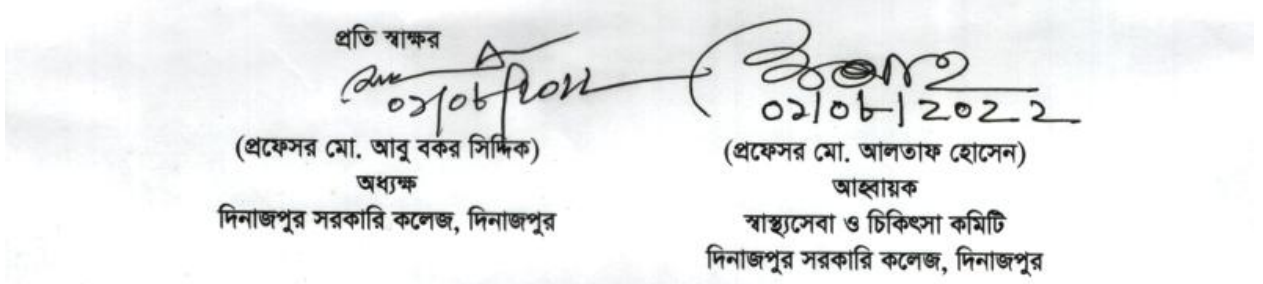 প্রতি স্বাক্ষর
(প্রফেসর মো. আবু বকর সিদ্দিক)
অধ্যক্ষ
দিনাজপুর সরকারি কলেজ, দিনাজপুর
০২/০৮/2022
(প্রফেসর মো. আলতাফ হোসেন)
আহ্বায়ক
স্বাস্থ্যসেবা ও চিকিৎসা কমিটি
দিনাজপুর সরকারি কলেজ, দিনাজপুর